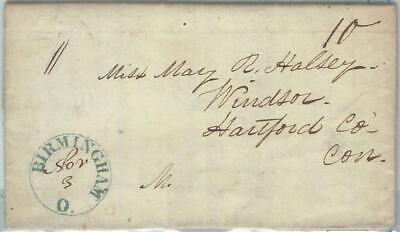 10
Miss Mary R. Halsey.
Windsor.
Hartford Co.
Con.
BIRMINGHAM
Nov
3
O.
M.